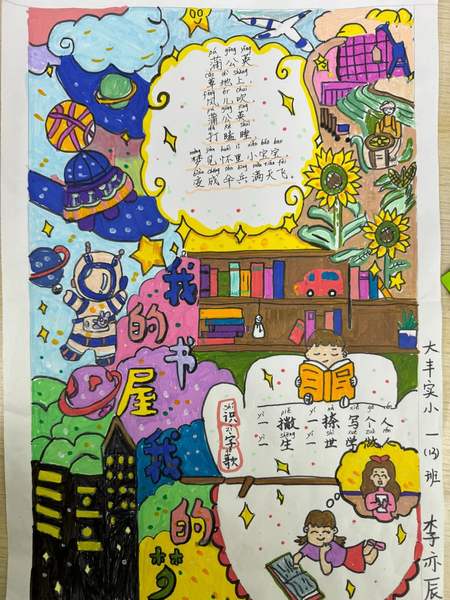 pú gōng yīng
蒲公英
cǎo dì shàng
草地上
fēng ér chuī
风儿吹
pú gōng yīng
蒲公英
dǎ kē shuì
打瞌睡
mèng jiàn huái lǐ xiǎo bǎo bao
梦见怀里小宝宝
biàn chéng sǎn bīng mǎn tiān fēi
变成伞兵满天飞。
我的书屋
我的梦
识字歌
yì piě yí nà xiě gè rén
一撇一捺写个人
yì shēng yí shì xué zuò rén
一生一世学做人
大丰实小 一(四)班 李亦辰